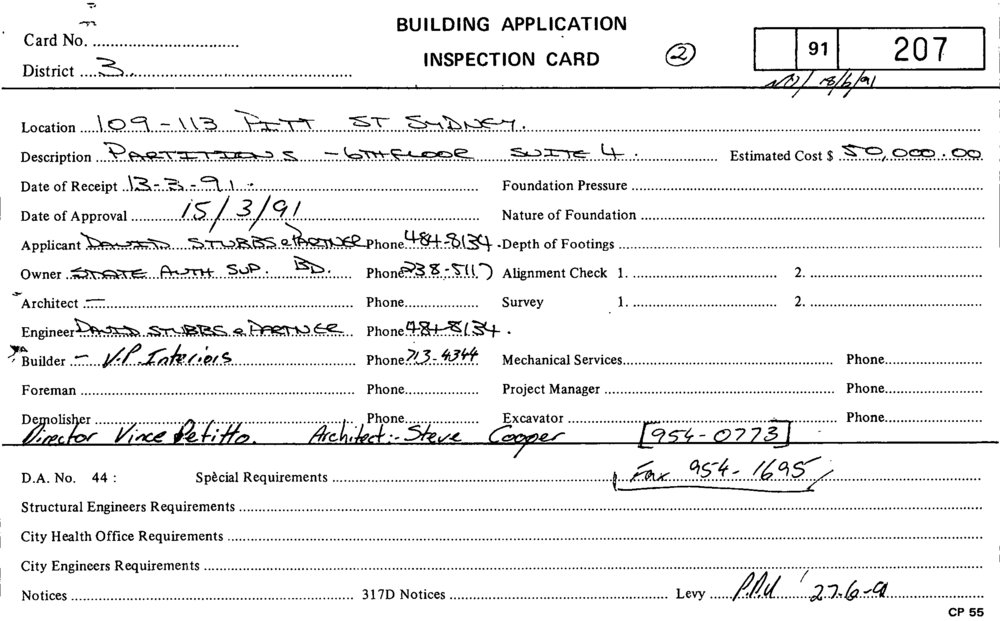 BUILDING APPLICATION
Card No.
INSPECTION CARD 2 91 207
District 3
18/6/91
Location 109-113 PITT ST SYDNEY.
Description PARTITIONS - 6TH FLOOR SUITE 4. Estimated Cost $ 50,000.00
Date of Receipt 13-3-91. Foundation Pressure
Date of Approval 15/3/91 Nature of Foundation
Applicant DAVID STUBBS & PARTNER Phone 484-8134. Depth of Footings
Owner STATE AUTH SUP. BD. Phone 238-5117 Alignment Check 1. 2.
Architect — Phone Survey 1. 2.
Engineer DAVID STUBBS & PARTNER Phone 484-8134.
Builder - V.P. Interiors Phone 713-4344 Mechanical Services Phone
Foreman Phone Project Manager Phone
Demolisher Phone Excavator Phone
Director Vince Petitto. Architect:- Steve Cooper [954-0773]
D.A. No. 44 : Special Requirements Fax 954-1695
Structural Engineers Requirements
City Health Office Requirements
City Engineers Requirements
Notices 317D Notices Levy 27-6-91
CP 55